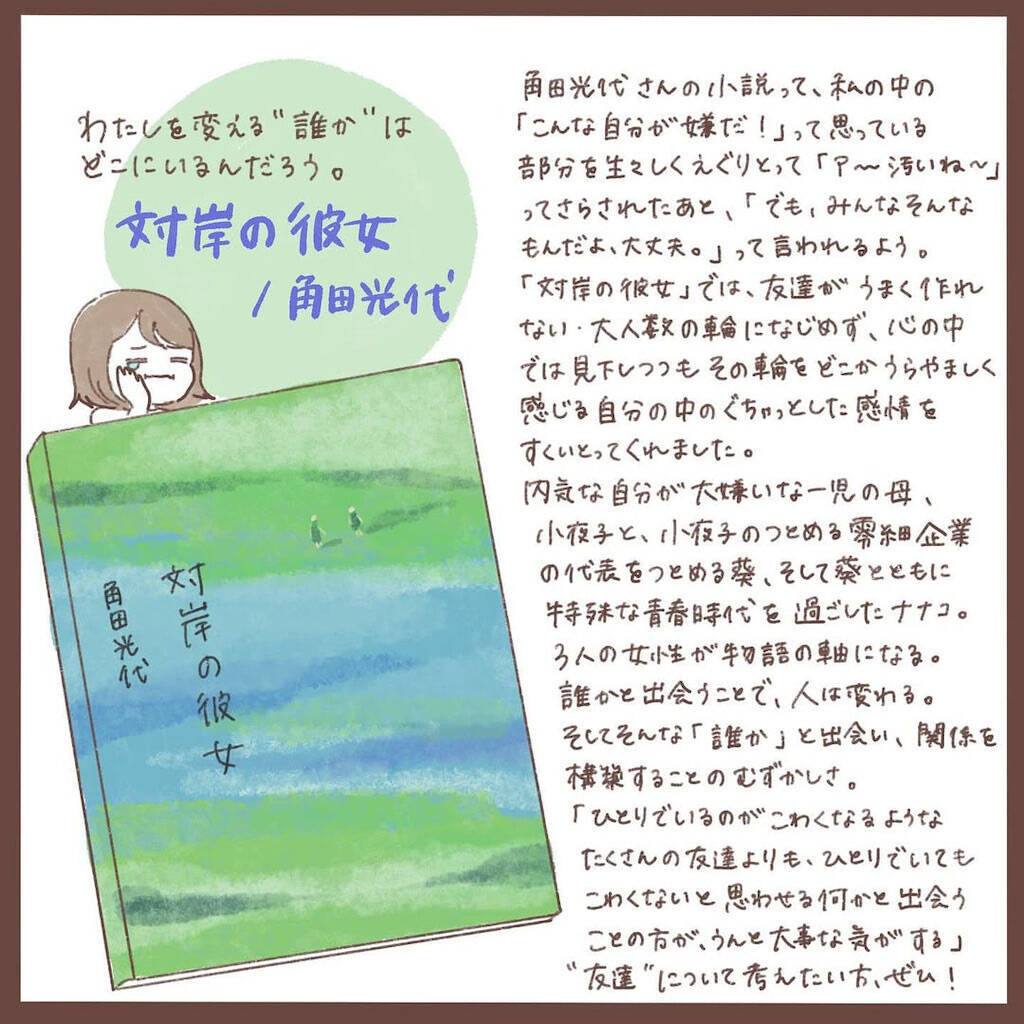 わたしを変える"誰か"は
どこにいるんだろう。
対岸の彼女
/角田光代
対岸の彼女
角田光代
角田光代さんの小説って、私の中の
「こんな自分が嫌だ!」って思っている
部分を生々しくえぐりとって「ア〜汚いね〜」
ってさらされたあと、「でも、みんなそんな
もんだよ、大丈夫。」って言われるよう。
「対岸の彼女」では、友達がうまく作れ
ない・大人数の輪になじめず、心の中
では見下しつつもその輪をどこかうらやましく
感じる自分の中のぐちゃっとした感情を
すくいとってくれました。
内気な自分が大嫌いな一児の母、
小夜子と、小夜子のつとめる零細企業
の代表をつとめる葵、そして葵とともに
特殊な青春時代を過ごしたナナコ。
3人の女性が物語の軸になる。
誰かと出会うことで、人は変わる。
そしてそんな「誰か」と出会い、関係を
構築することのむずかしさ。
「ひとりでいるのがこわくなるような
たくさんの友達よりも、ひとりでいても
こわくないと思わせる何かと出会う
ことの方が、うんと大事な気がする」
"友達"について考えたい方、ぜひ!